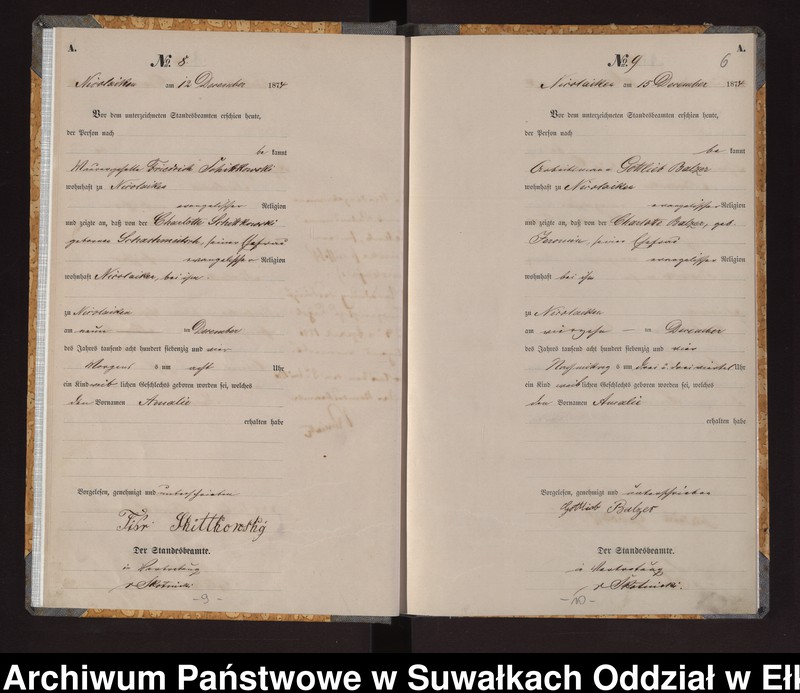 A.
No. 8
Nicolaiken am 12 December 1874
Vor dem unterzeichneten Standesbeamten erschien heute,
der Person nach
be kannt
Maurergeselle Friedrich Schittkowski
wohnhaft zu Nicolaiken
evangelischer Religion
und zeigte an, daß von der Charlotte Schittkowski
geborene seiner Ehefrau
evangelischer Religion
wohnhaft Nicolaiken, bei ihm
zu Nicolaiken
am neun ten December
des Jahres tausend acht hundert siebenzig und vier
Morgens um acht Uhr
ein Kind weib lichen Geschlechts geboren worden sei, welches
den Vornamen Amalie
erhalten habe
Vorgelesen, genehmigt und unterschrieben
Skittkowsky
Der Standesbeamte.
in Vertretung
-9-
A.
No. 9
6
Nicolaiken am 15 December 1874
Vor dem unterzeichneten Standesbeamten erschien heute,
der Person nach
be kannt
Arbeitsmann Gottlieb Balzer
wohnhaft zu Nicolaiken
evangelischer Religion
und zeigte an, daß von der Charlotte Balzer, geb.
seiner Ehefrau
evangelischer Religion
wohnhaft bei ihm
zu Nicolaiken
am vierzehn ten December
des Jahres tausend acht hundert siebenzig und vier
Nachmittag um drei u drei viertel Uhr
ein Kind weib lichen Geschlechts geboren worden sei, welches
den Vornamen Amalie
erhalten habe
Vorgelesen, genehmigt und unterschrieben
Gottlieb Balzer
Der Standesbeamte.
in Vertretung
-10-
Archiwum Państwowe w Suwałkach Oddział w Ełk